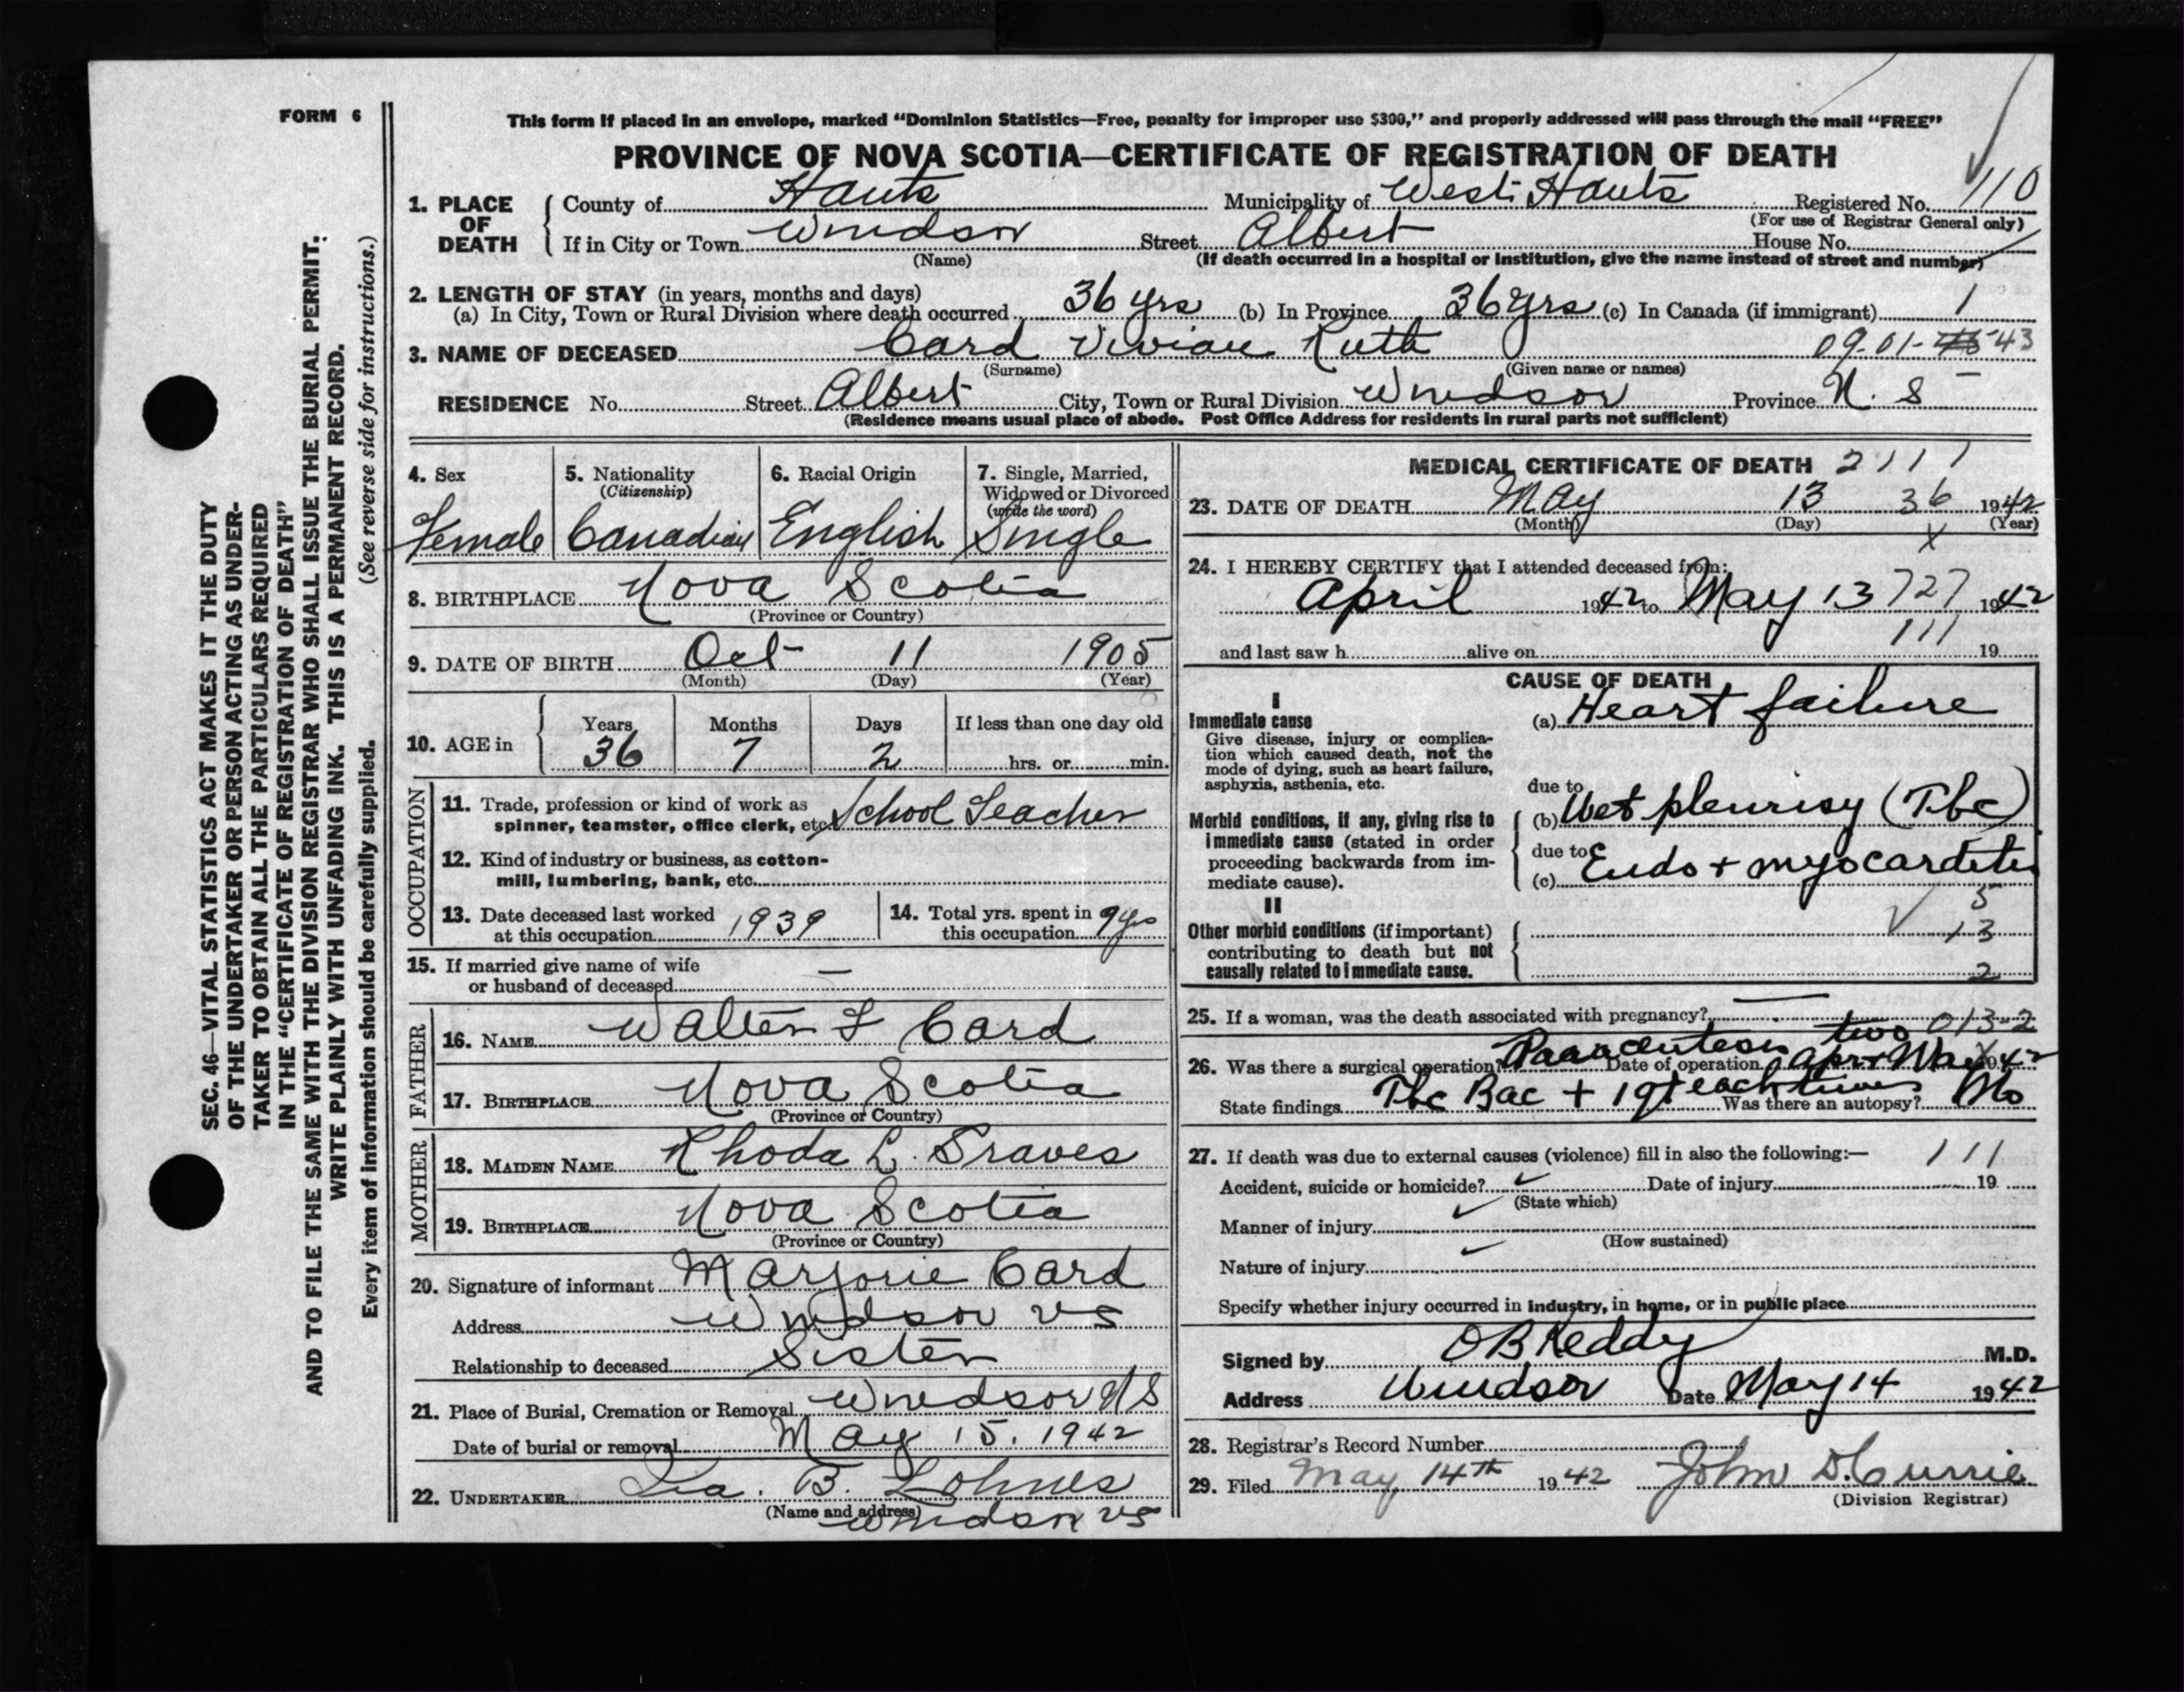 FORM 6
This form if placed in an envelope, marked "Dominion Statistics—Free, penalty for improper use $300," and properly addressed will pass through the mail "FREE"
PROVINCE OF NOVA SCOTIA—CERTIFICATE OF REGISTRATION OF DEATH
1. PLACE OF DEATH
County of Hants Municipality of West Hants Registered No. 110
(For use of Registrar General only)
If in City or Town Windsor Street Albert House No.
(Name) (If death occurred in a hospital or institution, give the name instead of street and number)
2. LENGTH OF STAY (in years, months and days)
(a) In City, Town or Rural Division where death occurred 36 yrs (b) In Province 36 yrs (c) In Canada (if immigrant) 1
3. NAME OF DECEASED Card Vivian Ruth 09-01- 43
(Surname) (Given name or names)
RESIDENCE No. Street Albert City, Town or Rural Division Windsor Province N. S
(Residence means usual place of abode. Post Office Address for residents in rural parts not sufficient)
SEC. 46—VITAL STATISTICS ACT MAKES IT THE DUTY
OF THE UNDERTAKER OR PERSON ACTING AS UNDER-
TAKER TO OBTAIN ALL THE PARTICULARS REQUIRED
IN THE "CERTIFICATE OF REGISTRATION OF DEATH"
AND TO FILE THE SAME WITH THE DIVISION REGISTRAR WHO SHALL ISSUE THE BURIAL PERMIT.
WRITE PLAINLY WITH UNFADING INK. THIS IS A PERMANENT RECORD.
Every item of information should be carefully supplied. (See reverse side for instructions.)
4. Sex
Female
5. Nationality
(Citizenship)
Canadian
6. Racial Origin
English
7. Single, Married,
Widowed or Divorced
(write the word)
Single
8. BIRTHPLACE Nova Scotia
(Province or Country)
9. DATE OF BIRTH Oct 11 1905
(Month) (Day) (Year)
10. AGE in
Years Months Days If less than one day old
36 7 2 hrs. or min.
OCCUPATION
11. Trade, profession or kind of work as
spinner, teamster, office clerk, etc. School Teacher
12. Kind of industry or business, as cotton-
mill, lumbering, bank, etc.
13. Date deceased last worked
at this occupation 1939
14. Total yrs. spent in
this occupation 9 yrs
15. If married give name of wife
or husband of deceased —
FATHER
16. NAME Walter F Card
17. BIRTHPLACE Nova Scotia
(Province or Country)
MOTHER
18. MAIDEN NAME Rhoda L. Graves
19. BIRTHPLACE Nova Scotia
(Province or Country)
20. Signature of informant Marjorie Card
Address Windsor NS
Relationship to deceased Sister
21. Place of Burial, Cremation or Removal Windsor N S
Date of burial or removal May 15. 1942
22. UNDERTAKER B. Lohnes
(Name and address)
Windsor NS
MEDICAL CERTIFICATE OF DEATH 2111
23. DATE OF DEATH May 13 36 1942
(Month) (Day) (Year)
X
24. I HEREBY CERTIFY that I attended deceased from:
April 1942 to May 13 727 1942
111
and last saw h alive on 19
CAUSE OF DEATH
I
Immediate cause
Give disease, injury or complica-
tion which caused death, not the
mode of dying, such as heart failure,
asphyxia, asthenia, etc.
(a) Heart failure
due to
Morbid conditions, if any, giving rise to
immediate cause (stated in order
proceeding backwards from im-
mediate cause).
(b) Wet pleurisy (Tbc)
due to
(c) Endo + myocarditis
5
II
Other morbid conditions (if important)
contributing to death but not
causally related to immediate cause.
13
2
25. If a woman, was the death associated with pregnancy? — 013-2
26. Was there a surgical operation? Paracentesis two Date of operation Apr + May 1942
State findings Tbc Bac + 1 qt each time Was there an autopsy? No
27. If death was due to external causes (violence) fill in also the following:— 111
Accident, suicide or homicide? Date of injury 19
(State which)
Manner of injury
(How sustained)
Nature of injury
Specify whether injury occurred in industry, in home, or in public place
Signed by O B Keddy M.D.
Address Windsor Date May 14 1942
28. Registrar's Record Number
29. Filed May 14th 1942 John D. Currie
(Division Registrar)